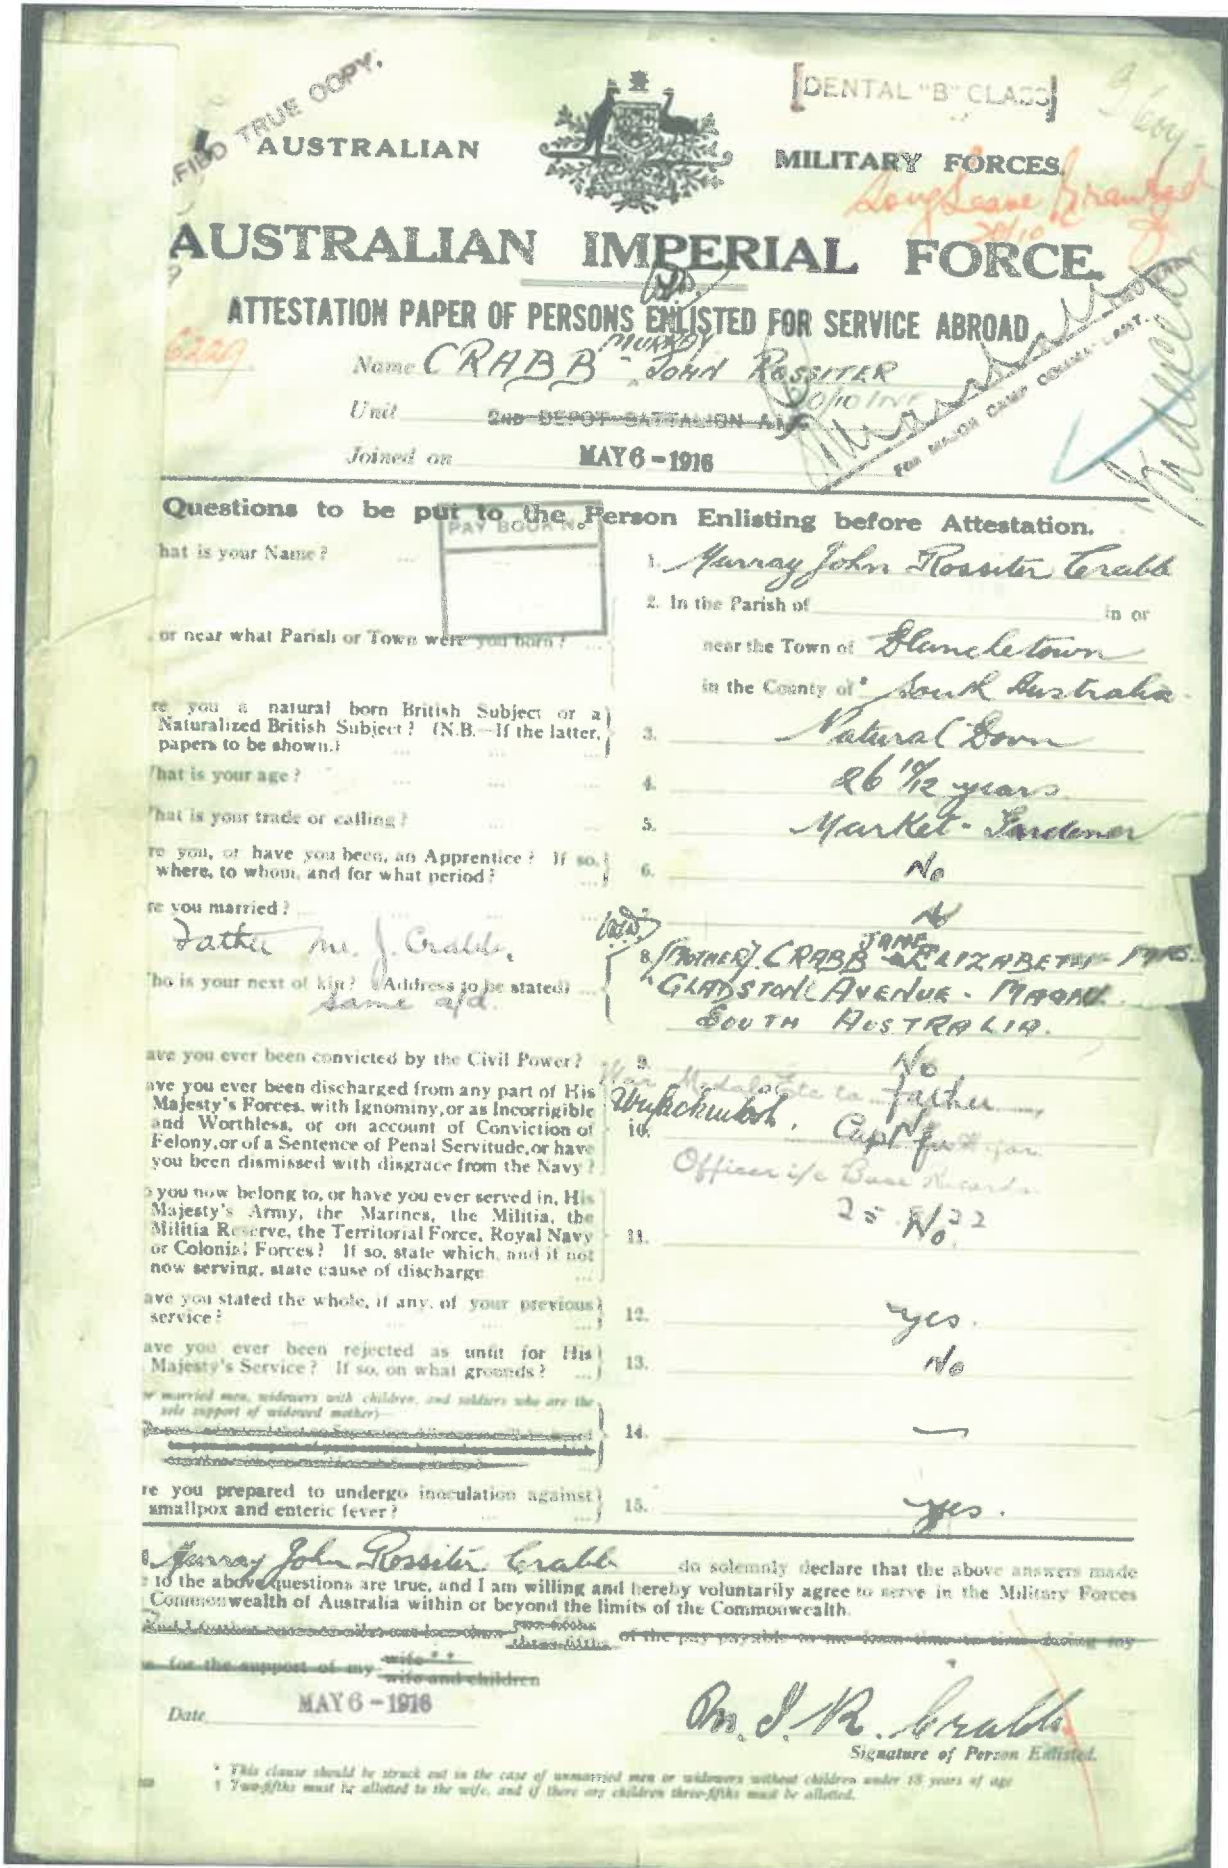 FIED TRUE COPY.
[DENTAL "B" CLASS]
AUSTRALIAN MILITARY FORCES.
Long Leave Granted
20/10
AUSTRALIAN IMPERIAL FORCE.
ATTESTATION PAPER OF PERSONS ENLISTED FOR SERVICE ABROAD
6229
MURRAY
Name CRABB JOHN ROSSITER
Unit 2ND DEPOT BATTALION A.I.F.
Joined on MAY 6 - 1916
FOR MAJOR CAMP COMM
Questions to be put to the Person Enlisting before Attestation.
PAY BOOK No
hat is your Name? ... 1. Murray John Rossiter Crabb
or near what Parish or Town were you born? ... 2. In the Parish of in or
near the Town of Blanchetown
in the County of South Australia
re you a natural born British Subject or a
Naturalized British Subject? (N.B.—If the latter,
papers to be shown.) 3. Natural Born
hat is your age? ... 4. 26 11/12 years
hat is your trade or calling? ... 5. Market-Gardener
re you, or have you been, an Apprentice? If so,
where, to whom, and for what period? ... 6. No
re you married? ... 7. No
Father Mr. J. Crabb.
ho is your next of kin? (Address to be stated) ...
same a/d.
JANE
8. (MOTHER). CRABB ELIZABETH MRS.
GLADSTONE AVENUE - MAGILL
SOUTH AUSTRALIA.
ave you ever been convicted by the Civil Power? 9. No
War Medals Etc to father
ave you ever been discharged from any part of His
Majesty's Forces, with Ignominy, or as Incorrigible
and Worthless, or on account of Conviction of
Felony, or of a Sentence of Penal Servitude, or have
you been dismissed with disgrace from the Navy? 10.
Capt for
Officer i/c Base Records
you now belong to, or have you ever served in, His
Majesty's Army, the Marines, the Militia, the
Militia Reserve, the Territorial Force, Royal Navy
or Colonial Forces? If so, state which, and if not
now serving, state cause of discharge 11. No.
ave you stated the whole, if any, of your previous
service? ... 12. yes.
ave you ever been rejected as unfit for His
Majesty's Service? If so, on what grounds? ... 13. No
or married men, widowers with children, and soldiers who are the
sole support of widowed mother)—
14. —
re you prepared to undergo inoculation against
smallpox and enteric fever? ... 15. yes.
Murray John Rossiter Crabb do solemnly declare that the above answers made
to the above questions are true, and I am willing and hereby voluntarily agree to serve in the Military Forces
Commonwealth of Australia within or beyond the limits of the Commonwealth.
two-fifths
three-fifths of the pay payable to me from time to time during my
for the support of my wife
wife and children
Date MAY 6 - 1916
M. J. R. Crabb
Signature of Person Enlisted.
* This clause should be struck out in the case of unmarried men or widowers without children under 18 years of age
† Two-fifths must be allotted to the wife, and if there are children three-fifths must be allotted.